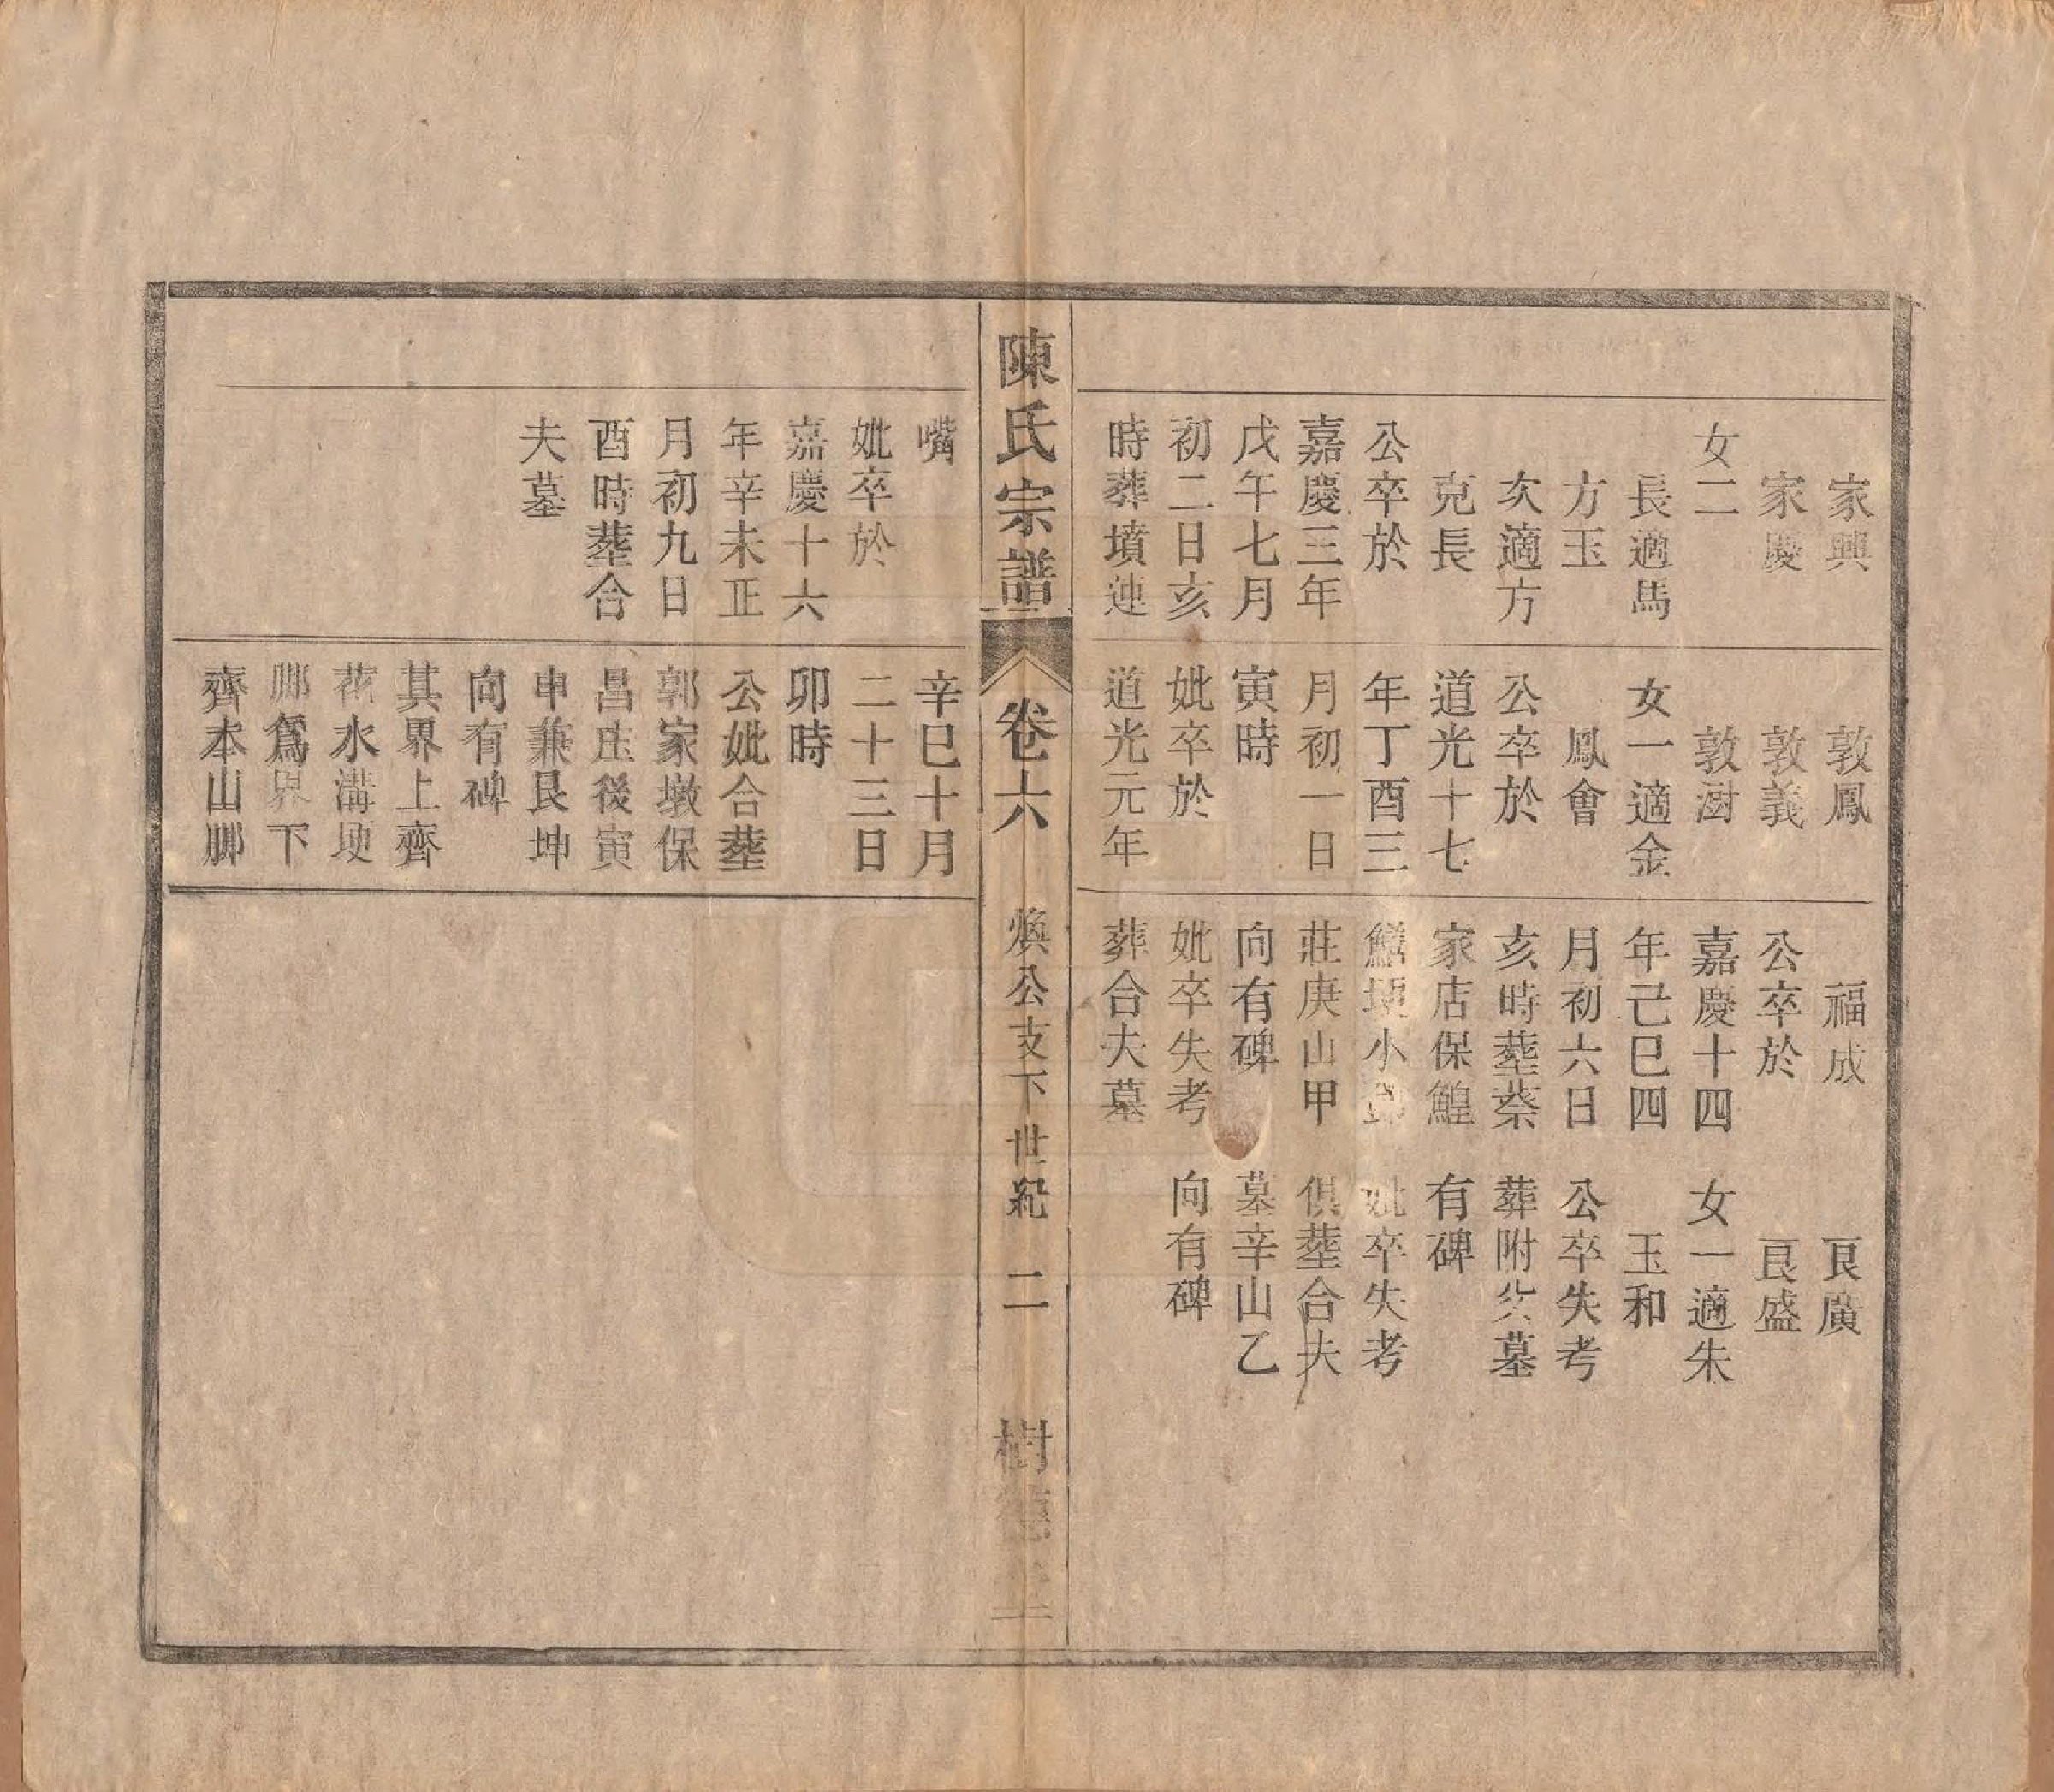 家興
家慶
女二
長適馬
方玉
次適方
克長
公卒於
嘉慶三年
戊午七月
初二日亥
時葬墳蓮
敦鳳
敦義
敦澍
女一適金
鳳會
公卒於
道光十七
年丁酉三
月初一日
寅時
妣卒於
道光元年
福成
公卒於
嘉慶十四
年己巳四
月初六日
亥時塟蔡
家店保鰉
小
莊庚山甲
向有碑
妣卒失考
葬合夫墓
艮廣
艮盛
女一適朱
玉和
公卒失考
葬附父墓
有碑
妣卒失考
俱塟合夫
墓辛山乙
向有碑
陳氏宗譜
卷六
煥公支下世紀
二
樹德堂
嘴
妣卒於
嘉慶十六
年辛未正
月初九日
酉時塟合
夫墓
辛巳十月
二十三日
卯時
公妣合塟
郭家墩保
昌庄後寅
申兼艮坤
向有碑
其界上齊
花水溝埂
脚爲界下
齊本山脚